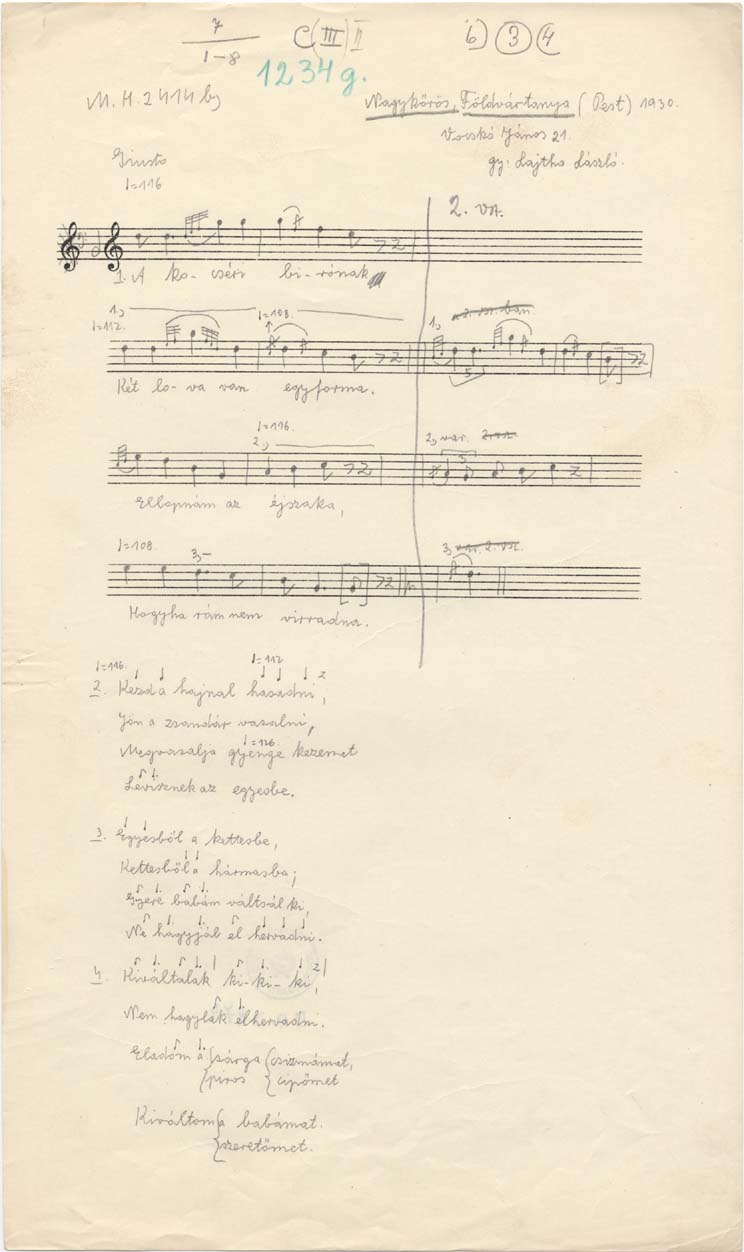 7
1-8
C(III)II
6) (3) (4
1234g.
M.H. 2414 b)
Nagykőrös, Földvártanya (Pest) 1930.
Vocskó János 21.
gy: Lajtha László.
Giusto
♩=116
2. va.
1. A ko- cséri bi- rónak
1) ♩=112. ♩=108.
1,
Két lo- va van egyforma.
♩=116.
2, 2, var.
Ellopnám az éjszaka,
♩=108. 3,
3, var. 2. vsz.
Hogyha rám nem virradna.
♩=116. ♩=112
2. Kezd a hajnal hasadni,
Jön a zsandár vasalni,
♩=126.
Megvasalja gyenge kezemet
Levisznek az egyesbe.
3. Egyesből a kettesbe,
Kettesből a hármasba;
Gyere babám váltsál ki,
Ne hagyjál el hervadni.
4. Kiváltalak ki- ki- ki,
Nem hagylak elhervadni.
Eladom a { sárga { csizmámat,
{ piros { cipőmet
Kiváltom { a babámat.
{ szeretőmet.